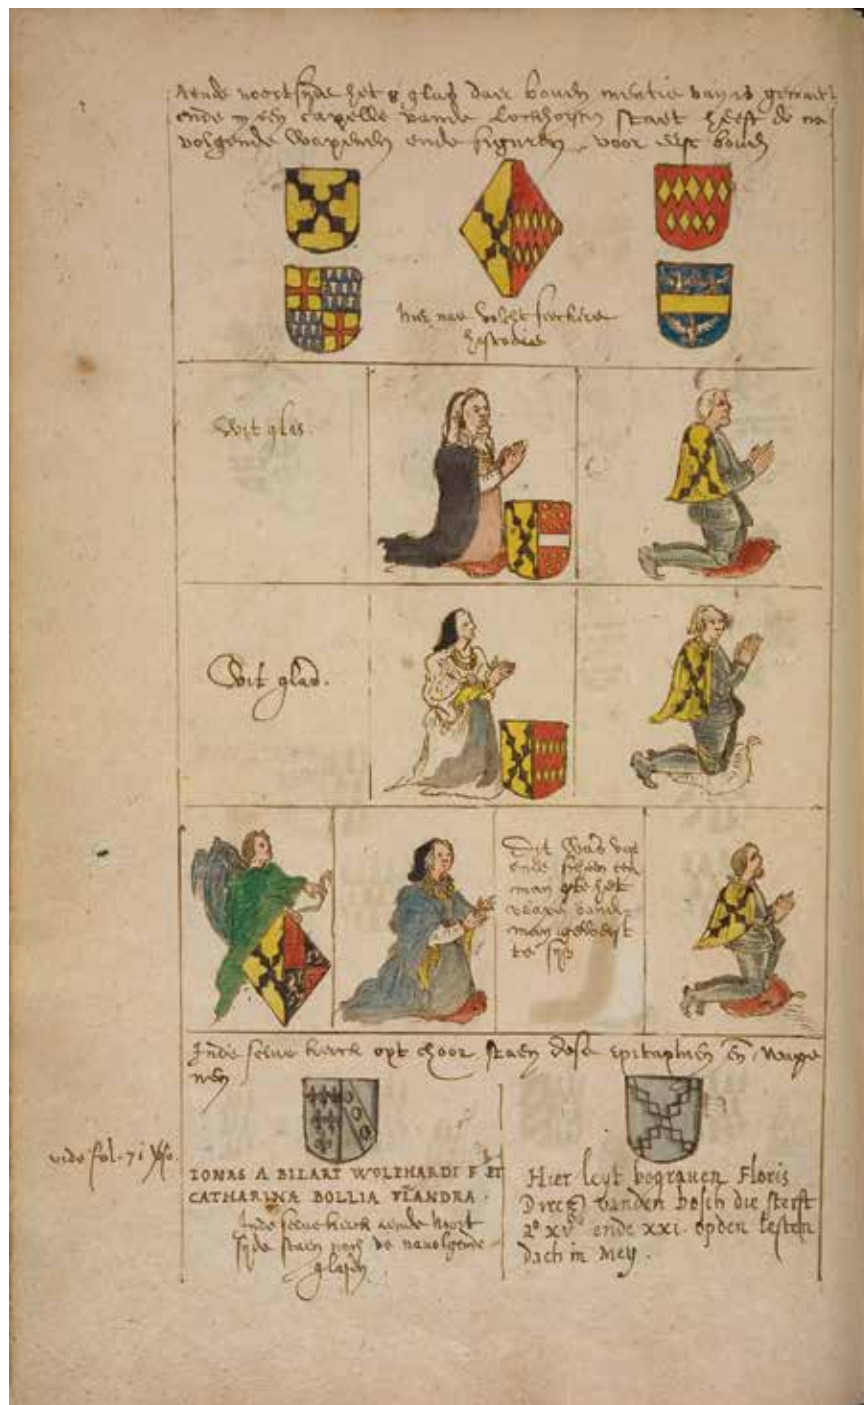 Aende noortsyde het 8 glas daer boven mentie van is gemaect
ende in een capelle vande Lochorsten staet heeft de na
volgende wapenen ende figuren voor eerst boven
hier nae volcht
Wit glas.
Wit glas.
Dit was
ende scheen een
man
te syn
Inde selve kerck opt choor staen dese epitaphien en wape
nen
vide fol. 71
IONAS A BILART WOLPHARDI F ET
CATHARINA BOLLIA FLANDRA.
Inde selve kerck aende noort
syde staen noch de navolgende
glasen
Hier leyt begraven Floris
vanden bosch die sterft
ende xxi. opden lesten
dach in Mey.